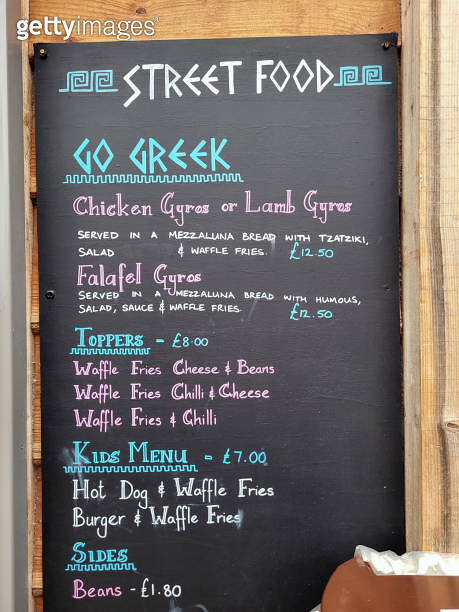 gettyimages
STREET FOOD
GO GREEK
Chicken Gyros or Lamb Gyros
SERVED IN A MEZZALUNA BREAD WITH TZATZIKI,
SALAD & WAFFLE FRIES. £12.50
Falafel Gyros
SERVED IN A MEZZALUNA BREAD WITH HUMOUS,
SALAD, SAUCE & WAFFLE FRIES. £12.50
TOPPERS - £8.00
Waffle Fries Cheese & Beans
Waffle Fries Chilli & Cheese
Waffle Fries & Chilli
KIDS MENU = £7.00
Hot Dog & Waffle Fries
Burger & Waffle Fries
SIDES
Beans - £1.80